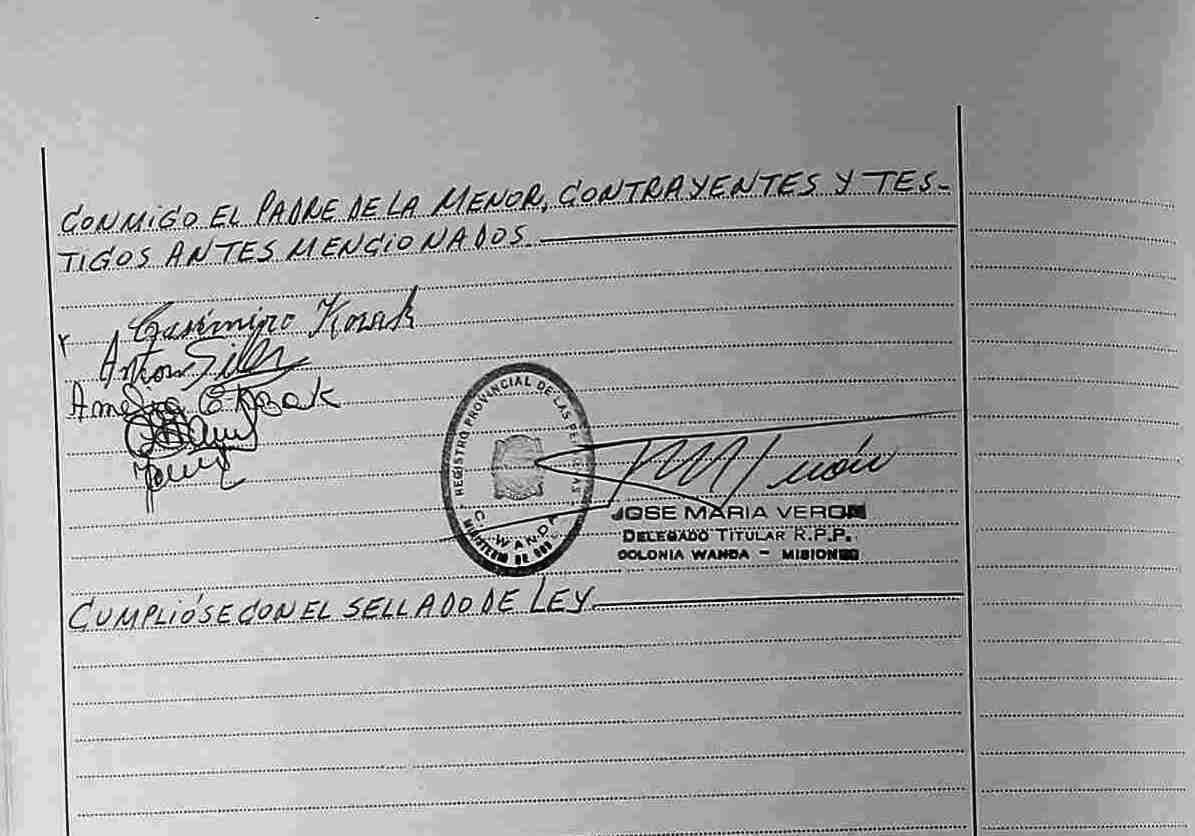 CONMIGO EL PADRE DE LA MENOR, CONTRAYENTES Y TES-
TIGOS ANTES MENCIONADOS.
Casimiro Kozak
Anton
Amelia E. Kozak
REGISTRO PROVINCIAL DE LAS PERSONAS
C. WANDA
MINISTERIO DE GOB
JOSE MARIA VERON
DELEGADO TITULAR R.P.P.
COLONIA WANDA - MISIONES
CUMPLIÓSE CON EL SELLADO DE LEY.